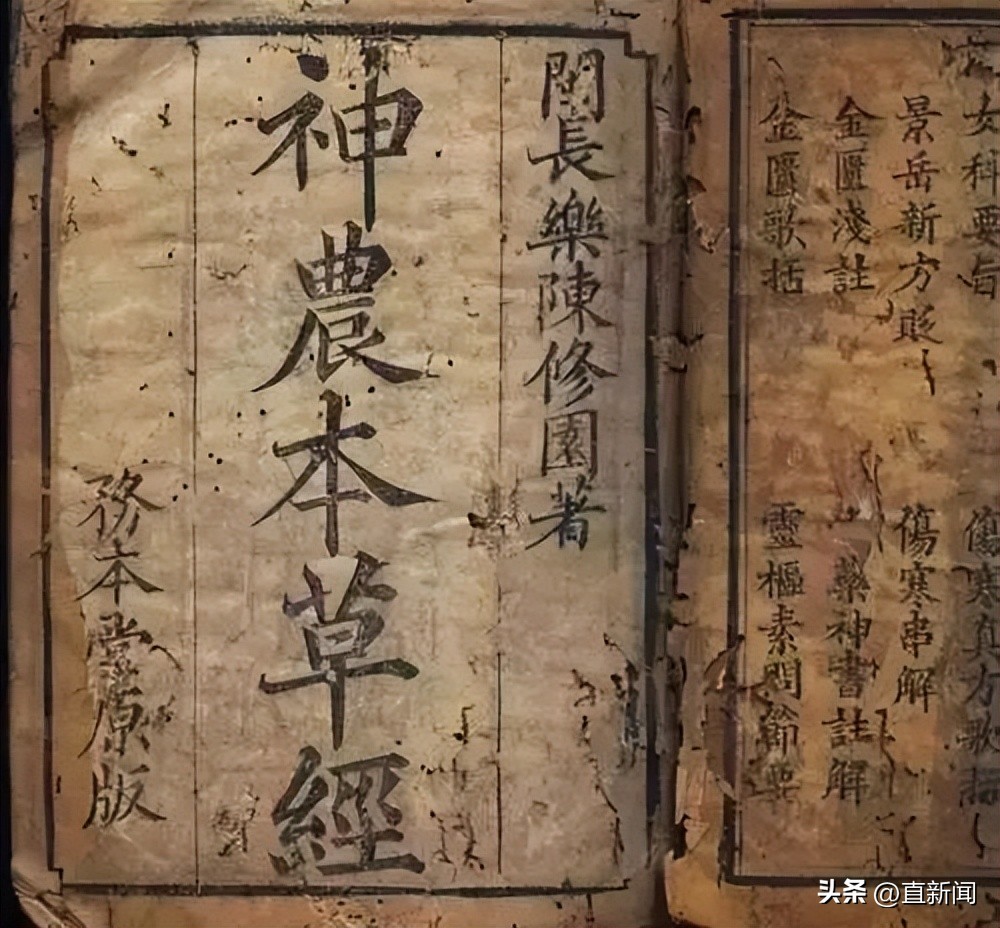 女科要旨
傷寒真方歌括
景岳新方貶
傷寒串解
金匱淺註
藥神書註解
金匱歌括
靈樞素問節要
閩長樂陳修園著
神農本草經
務本堂原版
头条 @直新闻